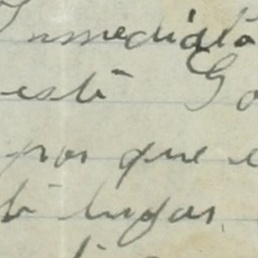 Inmediata
está Go
por que e
lugar